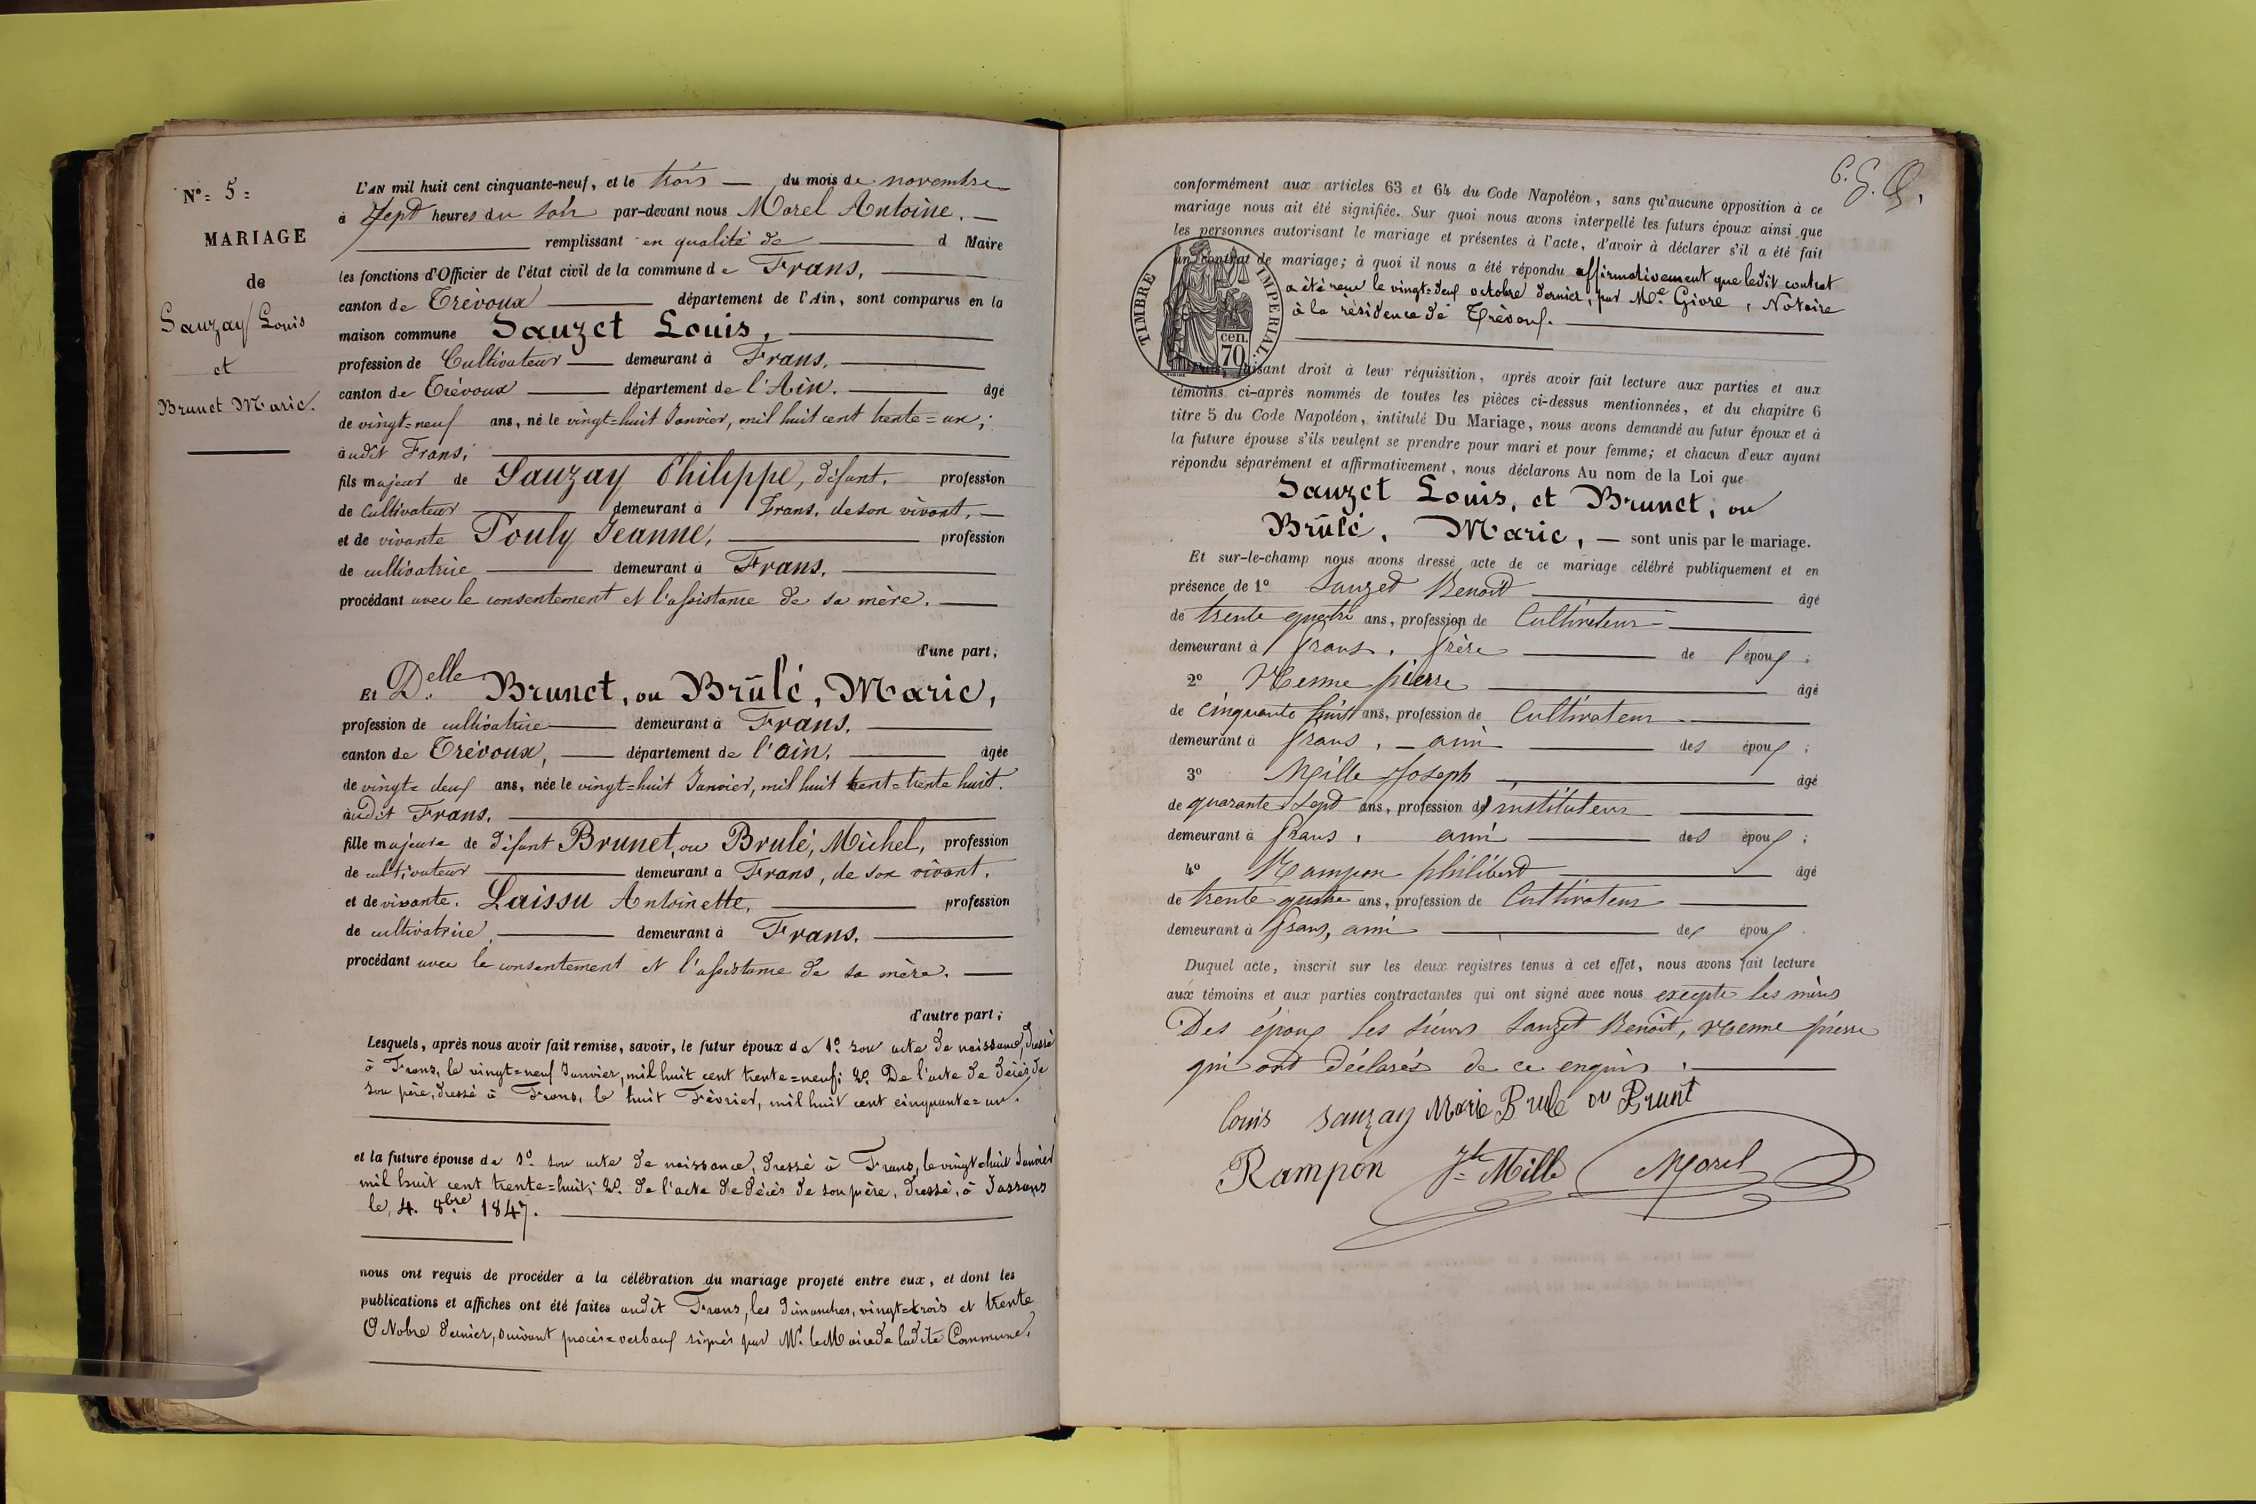 N° = 5 =
MARIAGE
de
Sauzay Louis
et
Brunet Marie.
L'AN mil huit cent cinquante-neuf, et le trois — du mois de novembre
à Sept heures du soir par-devant nous Morel Antoine. —
remplissant en qualité de — d Maire
les fonctions d'Officier de l'état civil de la commune de Frans, —
canton de Trévoux — département de l'Ain, sont comparus en la
maison commune Sauzet Louis, —
profession de Cultivateur — demeurant à Frans, —
canton de Trévoux — département de l'Ain. — âgé
de vingt=neuf ans, né le vingt=huit Janvier, mil huit cent trente=un;
audit Frans; —
fils majeur de Sauzay Philippe, défunt, profession
de Cultivateur — demeurant à Frans, de son vivant, —
et de vivante Pouly Jeanne, — profession
de cultivatrice — demeurant à Frans, —
procédant avec le consentement et l'assistance de sa mère. —
d'une part;
Et Delle Brunet, ou Brûlé, Marie,
profession de cultivatrice — demeurant à Frans. —
canton de Trévoux, — département de l'ain, — âgée
de vingt=deux ans, née le vingt=huit Janvier, mil huit cent=trente huit.
audit Frans. —
fille majeure de défunt Brunet, ou Brulé, Michel, profession
de cultivateur — demeurant à Frans, de son vivant,
et de vivante. Laissu Antoinette, — profession
de cultivatrice, — demeurant à Frans. —
procédant avec le consentement et l'assistance de sa mère. —
d'autre part;
Lesquels, après nous avoir fait remise, savoir, le futur époux de 1° son acte de naissance, dressé
à Frans, le vingt=neuf Janvier, mil huit cent trente=neuf; 2° De l'acte de décès de
son père, dressé à Frans, le huit Février, mil huit cent cinquante=un.
et la future épouse de 1° son acte de naissance, dressé à Frans, le vingt=huit Janvier
mil huit cent trente=huit; 2° de l'acte de décès de son père, dressé, à Jassans
le, 4. 8bre 1847. —
nous ont requis de procéder à la célébration du mariage projeté entre eux, et dont les
publications et affiches ont été faites audit Frans, les dimanches, vingt=trois et trente
Octobre dernier, suivant procès=verbaux signés par Mr. le Maire de ladite Commune.
conformément aux articles 63 et 64 du Code Napoléon, sans qu'aucune opposition à ce
mariage nous ait été signifiée. Sur quoi nous avons interpellé les futurs époux ainsi que
les personnes autorisant le mariage et présentes à l'acte, d'avoir à déclarer s'il a été fait
un contrat de mariage; à quoi il nous a été répondu affirmativement que ledit contrat
a été reçu le vingt=deux octobre dernier, par Me. Givre, Notaire
à la résidence de Trévoux. —
TIMBRE IMPERIAL.
cen.
70
faisant droit à leur réquisition, après avoir fait lecture aux parties et aux
témoins ci-après nommés de toutes les pièces ci-dessus mentionnées, et du chapitre 6
titre 5 du Code Napoléon, intitulé Du Mariage, nous avons demandé au futur époux et à
la future épouse s'ils veulent se prendre pour mari et pour femme; et chacun d'eux ayant
répondu séparément et affirmativement, nous déclarons Au nom de la Loi que
Sauzet Louis, et Brunet, ou
Brûlé, Marie, — sont unis par le mariage.
Et sur-le-champ nous avons dressé acte de ce mariage célébré publiquement et en
présence de 1° Sauzet Benoît — âgé
de trente quatre ans, profession de Cultivateur —
demeurant à frans, frère — de l'époux;
2° pierre — âgé
de cinquante huit ans, profession de Cultivateur —
demeurant à frans, — ami — des époux;
3° Mille Joseph, — âgé
de quarante Sept ans, profession d'instituteur —
demeurant à frans, ami — des époux;
4° Rampon philibert — âgé
de trente quatre ans, profession de Cultivateur —
demeurant à frans, ami — des époux.
Duquel acte, inscrit sur les deux registres tenus à cet effet, nous avons fait lecture
aux témoins et aux parties contractantes qui ont signé avec nous excepté les mères
Des époux les sieurs Sauzet Benoît, pierre
qui ont déclarés de ce enquis. —
louis sauzay Marie Brulé ou Brunt
Rampon Jh Mille Morel